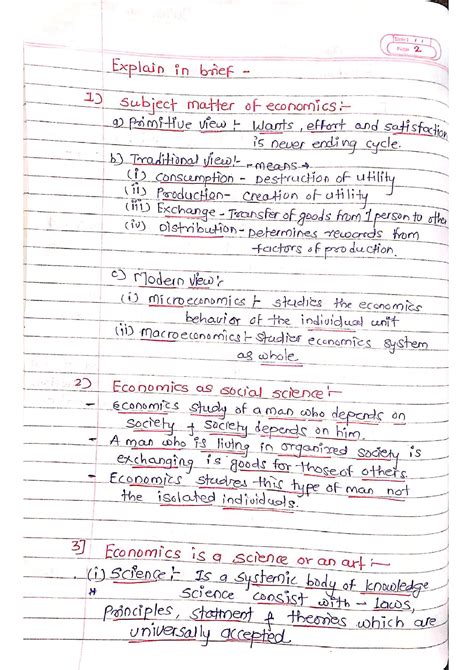 Date: / /
Page: 2
Explain in brief -
1) Subject matter of economics:-
a) Primitive view :- Wants, effort and satisfaction
is never ending cycle.
b) Traditional view :- -means →
(i) Consumption - Destruction of utility
(ii) Production - Creation of utility
(iii) Exchange - Transfer of goods from 1 person to other
(iv) Distribution - Determines rewards from
factors of production.
c) Modern view :-
(i) Microeconomics :- studies the economics
behavior of the individual unit
(ii) Macroeconomics :- Studies economics system
as whole.
2) Economics as social science :-
- Economics study of a man who depends on
society & society depends on him.
- A man who is living in organized society is
exchanging is goods for those of others.
- Economics studies this type of man not
the isolated individuals.
3] Economics is a science or an art :-
(i) Science :- Is a systemic body of knowledge
* science consist with - laws,
principles, statment & theories which are
universally accepted.